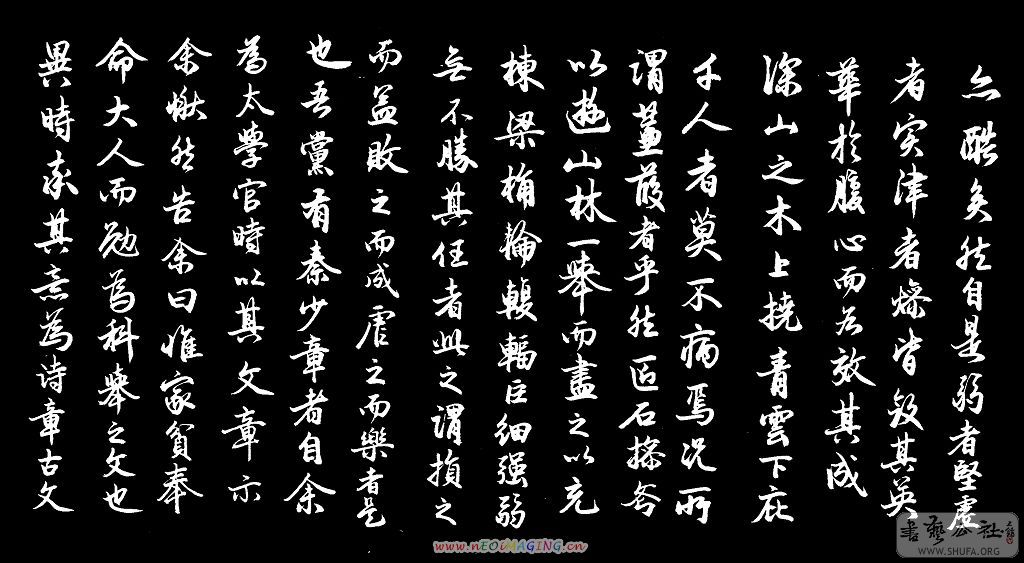 亦酷矣然自是弱者堅虛
者實津者燥皆斂其英
華於腹心而各效其成
深山之木上撓青雲下庇
千人者莫不病焉況所
謂蒹葭者乎然匠石操斧
以遊山林一舉而盡之以充
棟梁桷輪輗輻巨細強弱
無不勝其任者此之謂損之
而益敗之而成虐之而樂者是
也吾黨有秦少章者自余
為太學官時以其文章示
余愀然告余曰惟家貧奉
命大人而勉為科舉之文也
異時率其意為詩章古文
書藝公社
WWW.SHUFA.ORG
www.nEOiMAGING.cn